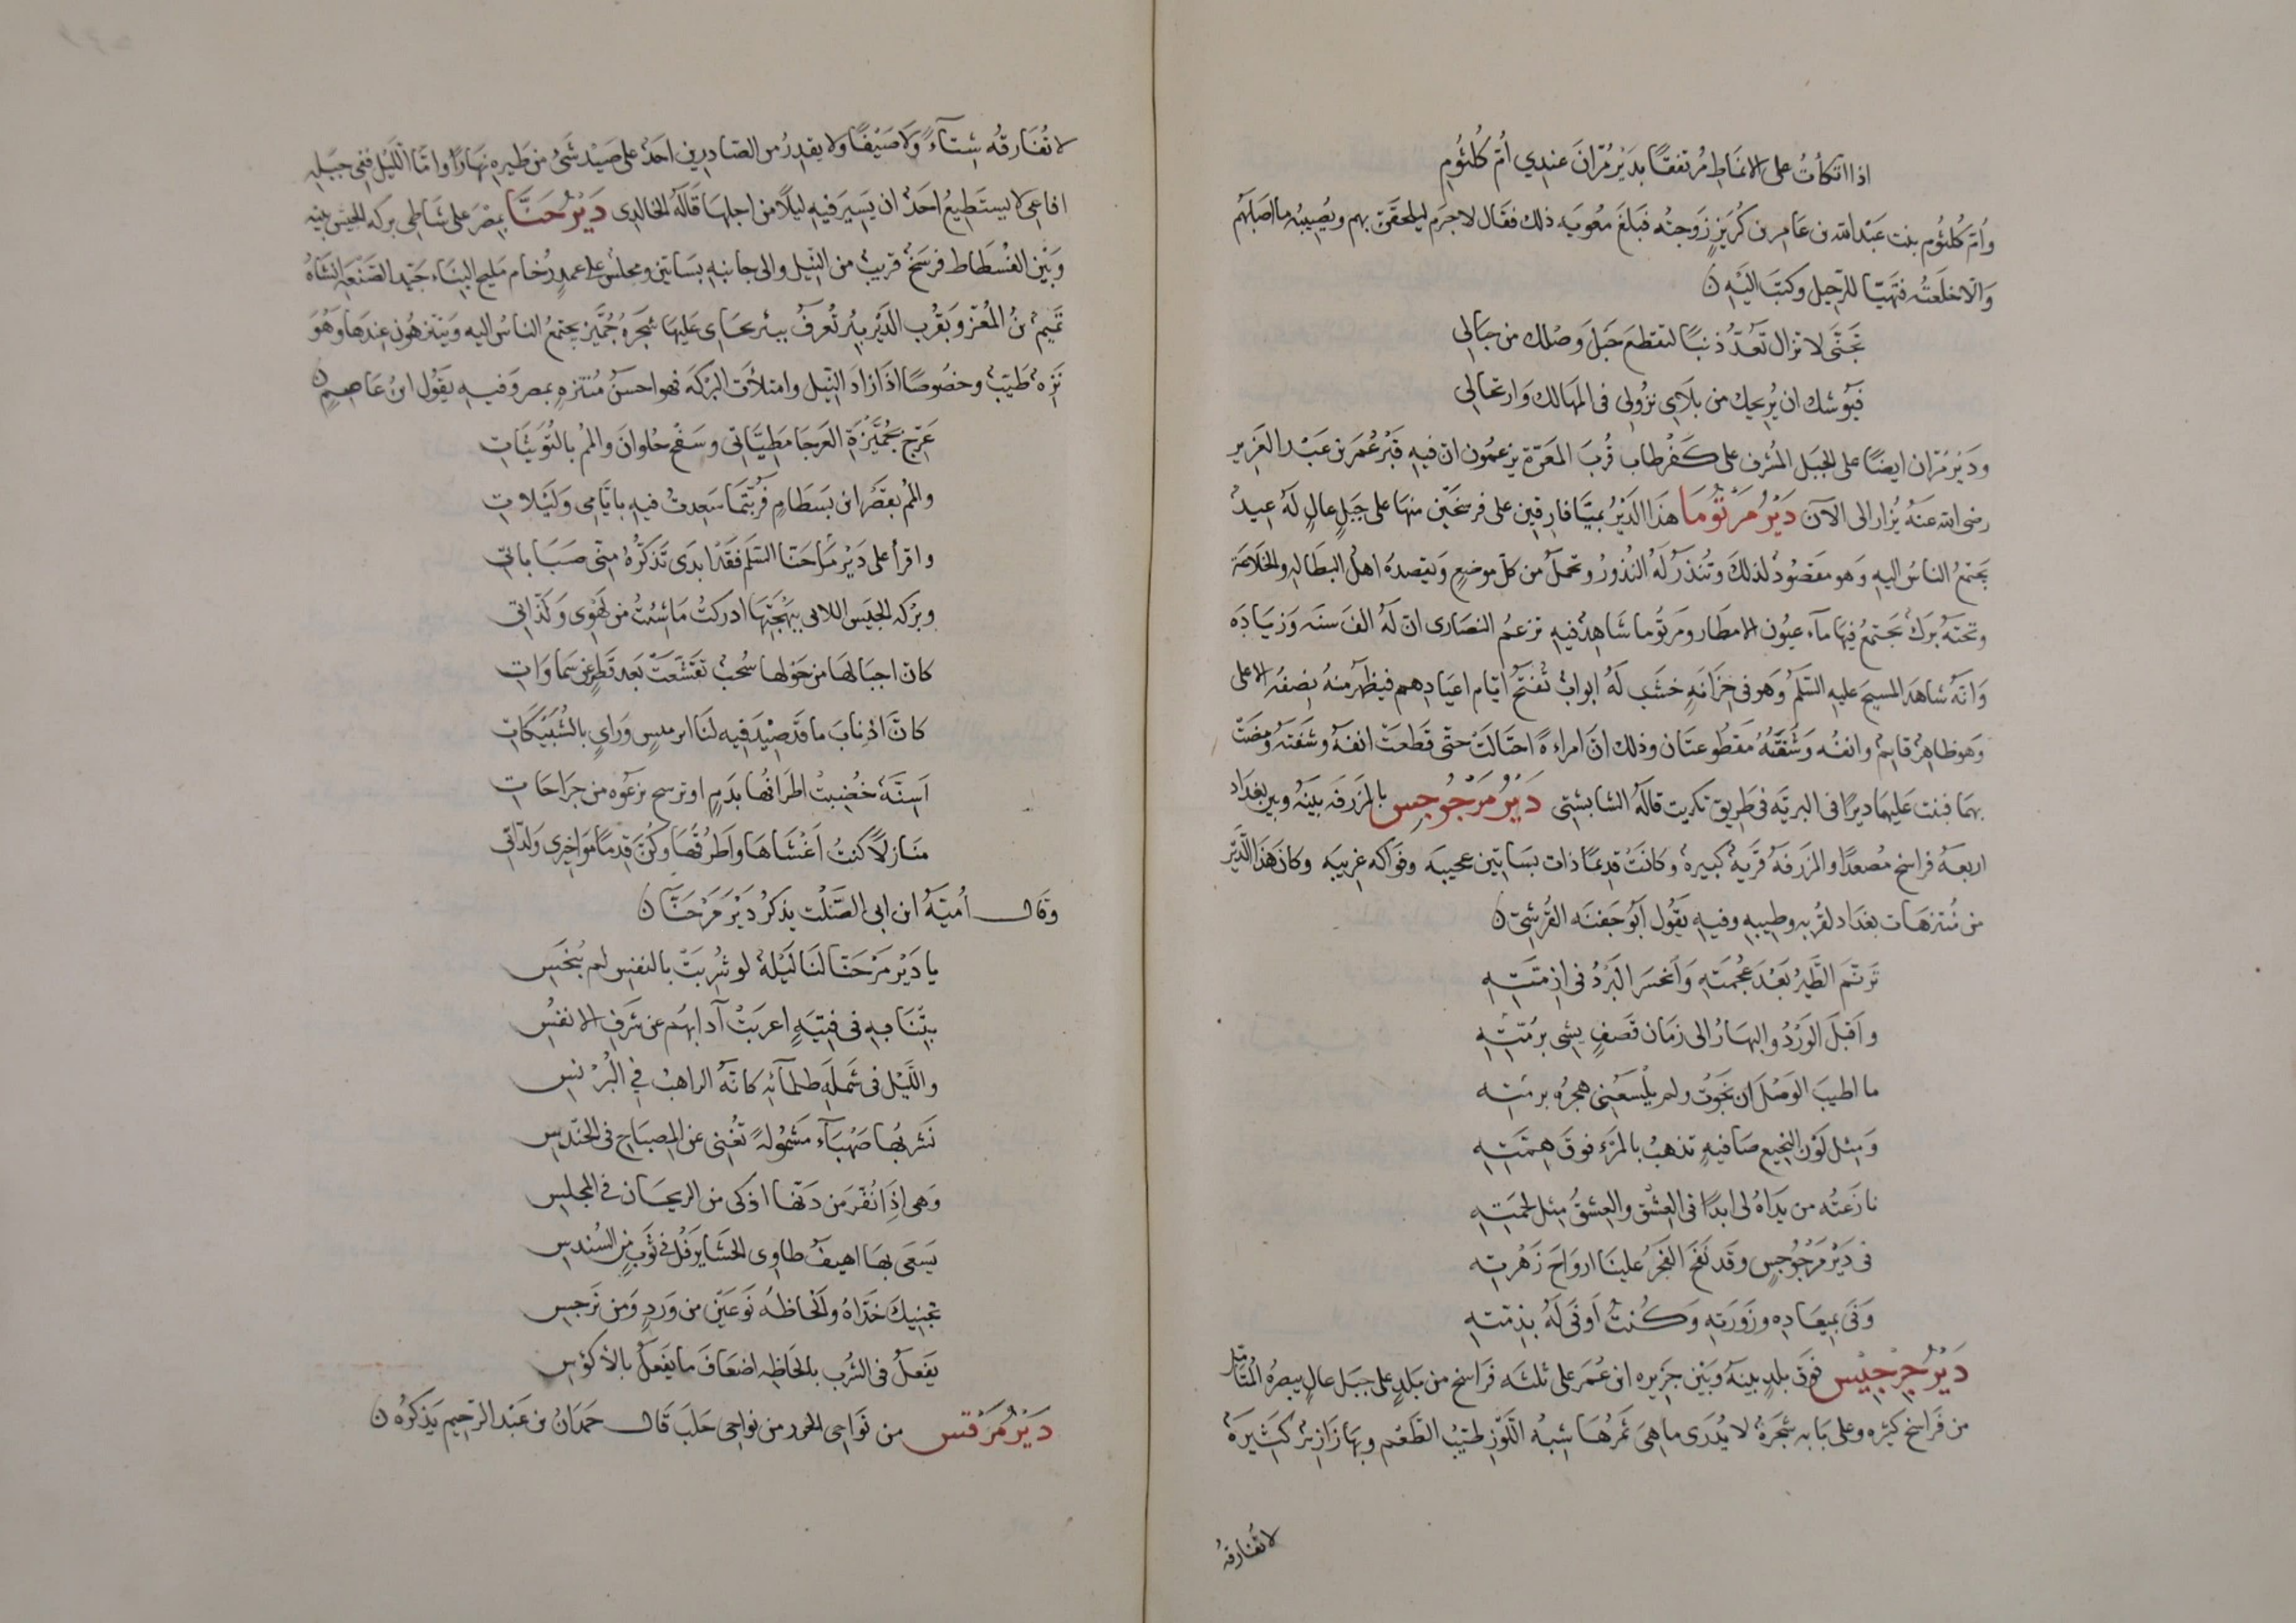 اذا اتكأتُ على الانماطِ مُرتفقًا بدَيْرِ مُرّانَ عندِي أُمُّ كُلثُومِ
وأُمّ كُلثُوم بنت عَبْد الله بن عَامِر بن كُرَيزٍ زَوجتُه فبَلغَ معٰويَه ذلك فقَال لاجرَم ليلحقَنّ بهم ويُصِيبُه ما اصَابهُم
وَالّا خلعَتُه فتَهَيّا للرّحِيل وكتبَ اليْهِ ن
تجَنَّى لا تزال تَعُدُّ ذنبًا لتقطعَ حَبلَ وَصْلك من حبَالِي
فيُوشك ان يُرِيحك من بلَاىِ نزُولى فى المهَالك وَارتحالِى
ودَيْر مُرّان ايضًا على الجبَل المشْرف على كَفْرطاب قُربَ المعَرّة يزعمُون انّ فيهِ قَبْرَ عُمَر بن عَبْد العَزِيز
رضى الله عنهُ يُزار الى الآن دَيْرُ مَرْتُومَا هَذا الدَيْرُ بميّافارِقين على فرسَخَين منهَا على جَبلٍ عالٍ لهُ عِيدٌ
يجتمعُ الناسُ اليهِ وَهو مقصُودٌ لذلكَ وتُنذَرُ لَهُ النُذورُ وتحملُ من كلّ موضعٍ وَيقصدُه اهلُ البطَالهِ والخلاعَة
وتحتهُ بُركٌ تجتمعُ فيهَا مآء عيُون الامطَار ومَرتُوما شَاهِدٌ فيهِ تزعمُ النصَارى انّ لهُ الفَ سنَه وَزيَادَه
وَانّهُ شاهَدَ المسيحَ عليهِ السّلمُ وَهو فى خزَانهِ خشَب لهُ ابوابٌ تُفتحُ ايّام اعيَادِهم فيظهَر منهُ نِصفُه الاعلى
وَهو ظاهِرٌ قايمٌ وانفُه وَشفَتُهُ مقطُوعتَان وذلك انّ امراءةً احتَالَتْ حتّى قطعَتْ انفَهُ وشَفتَهُ ومَضَتْ
بهمَا فبنت عليهمَا ديرًا فى البريّه فى طَرِيق تكريت قالهُ الشابشتى دَيْرُ مَرْجُرجِس بالمزرفَه بينَهُ وبين بغدَاد
اربعَهُ فراسخ مُصعدًا والمزرَفهُ قَريهٌ كبيرهٌ وكانَتْ قدِيمًا ذات بسَاتين عجيبَه وفوَاكه غرِيبَه وكانَ هَذا الدَّيْر
من مُتنزهَات بغدَاد لقربِه وطيبهِ وفيهِ يقُول أبُو جَفنَه القُرشِىّ ن
تَرنّمَ الطَّيْرُ بَعْدَ عُجمَتِهِ وَانحسَر البَرْدُ فى ازمَّتهِ
وَاَقبلَ الوَرْدُ والبهَارُ الى زمَان قصَفٍ يمشى برُمّتهِ
ما اطيبَ الوَصْلَ ان نجَوْتُ ولم يلْسعْنِى هجرُه برمتهِ
وَمِثل لَوْن النجِيع صَافيهٍ تذهبُ بالمرْء فوقَ هِمّتهِ
نازعتُه من يَدَاهُ لى ابدًا فى العِشْق والعِشقُ مِثل لحمتِهِ
فى دَيْر مَرْجُرجِسٍ وقد نفَحَ الفَجرُ علينَا اروَاحَ زَهْرتِهِ
وَفَى بميعَادِه وزَورَتهِ وَكُنتُ اَوفَى لهُ بذِمّتهِ
دَيْرُ جِرجِيس فوَق بلدٍ بينَهُ وَبَيْن جزِيره ابن عُمَر على ثلثَه فَراسخ من بَلدٍ على جبَل عالٍ يبصرُهُ المُتأمّل
من فَراسخ كثيَره وعلى بَابه شجَرَهٌ لا يُدرَى ما هىَ ثَمرُهَا شِبهُ اللَّوْزِ طيّبُ الطَّعْم وبهَا زَازيرٌ كَثيرَةٌ
لا تُفارقهُ
لا تُفارقهُ شِتاءً وَلا صَيْفًا ولا يقدِرُ من الصّادِرِين احَدٌ على صَيْد شَىْء من طَيرهِ نهَارًا وامّا اللّيْل ففِى جبَلهِ
افاعِى لا يستَطِيعُ احَدٌ ان يَسِيَر فيهِ ليلًا من اجلهَا قالَهُ الخالدِى دَيْرُ حَنَّا بمصْرَ على شَاطِى بركه الحبشِ بينه
وَبَيْن الفُسْطَاط فرسَخٌ قرِيبٌ من النِّيل والى جانبهِ بسَاتينٌ ومجلسٌ على عمدٍ رُخام مَليح البنَاء جَيّد الصَّنْعَهِ انشَاهُ
تميمُ بنُ المُعزّ وبقُرب الدَيْر بِئرٌ تُعرَفُ ببئر نجَاىِ عَليهَا شجَرهُ جُمَّيْز يجتمعُ الناسُ اليه وَيتنزّهُون عندَهَا وَهُوَ
نَزِهٌ طَيّبٌ وخصُوصًا اذَا زادَ النِّيل وامتلأت البُركهَ فهو احسَنُ مُنتزهٍ بمصر وَفيهِ يقُول ابنُ عَاصِمٍ ن
عَرّج بجُمّيْزَةِ العَرجَا مَطِيّاتى وسَفْح حُلوانَ والمُم بالتُّوَيثَاتِ
والمُم بقصْر ابن بَسَطَامٍ فَربّتمَا سَعِدتُ فيهِ بايّامى وَلَيلاتِ
واقرأ على دَيْر مَرْحَنّا السّلمَ فقَد ابدَى تَذَكّرُهُ مِنّى صبَاباتى
وبركه الجيش اللاى بِبهجَتِهَا ادركتُ مَا شِئتُ من لهَوِى وَلذّاتى
كانّ اجبَالهَا من حَوْلها سُحُبٌ تقشّعَتْ بَعد قَطرٍ عن سَماوَاتِ
كانّ اذنابَ ما قد صِيْدَ فيه لنا ابرميسٍ وَراىٍ بالشُّبَيْكاتِ
اَسِنّهٌ خُضبتْ اطَرافُها بدَمٍ او ترسح نزَعُوه من جرَاحَاتِ
منَازلًا كنتُ اَغْشَاهَا واَطرُقُهَا وكُنّ قِدمًا مَوَاخِيرى وَلذّاتى
وَقالَ أُميّةُ ابن ابى الصَّلْت يذكرُ دَيْرَ مَرْحَنّا ن
يا دَيْر مَرْحَنّا لنَا ليْلهٌ لو شُرِيَتْ بالنفسِ لم تُبْخَسِ
بِتْنَا بهِ فى فِتيَهٍ اعربَتْ آدابهُم عن شَرفِ الانفُسِ
واللَّيْل فى شَملهِ ظلمَآئهِ كانّهُ الراهبُ فِي البُرْنُسِ
نَشربُهَا صَهْبَآء مَشمُولةً تُغنِى عن المِصبَاحِ فى الحندِسِ
وَهى اِذَا نُقّرَ من دَنّها اذكى من الريحَان فى المجلِسِ
يَسعَى بهَا اهيفُ طاوِى الحَشَا يَرفُلُ فى ثَوْبٍ من السُندسِ
تجنِيكَ خَدّاهُ والحَاظُهُ نَوعَيْن من وَردٍ وَمن نَرجسِ
يَفعَلُ فى الشَّرب بالحَاظِهِ اضعَافَ ما يَفعَلُ بالأكؤُسِ
دَيْرُ مَرْقس من نوَاحِى الجزر من نوَاحِى حلَبَ قَالَ حَمدَانُ بن عَبْد الرّحيم يَذكرُه ن